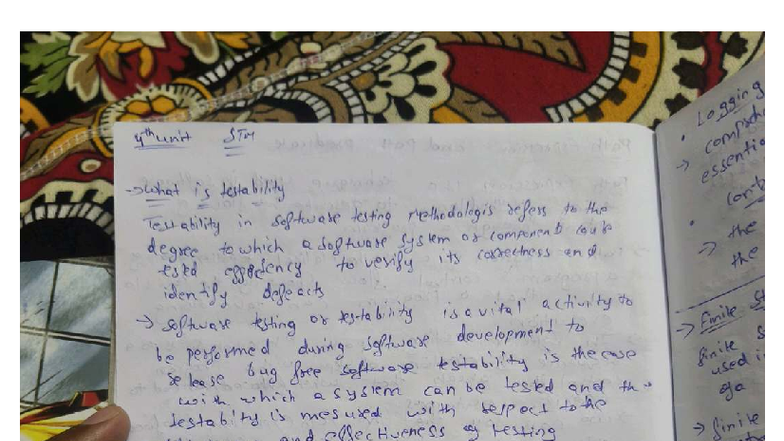 4th unit STM
→ what is testability
Testability in software testing methodologis refers to the
degree to which a software system or component could
tested to verify its correctness and
identify defects
→ software testing or testability is a vital activity to
be performed during software development to
release bug free software testability is the ease
with which a system can be tested and the
testability is mesured with respect to the
and effectiveness of testing
• Logging
→
essentia
•
→ the
the
→ Finite St
finite s
used i
→ finite